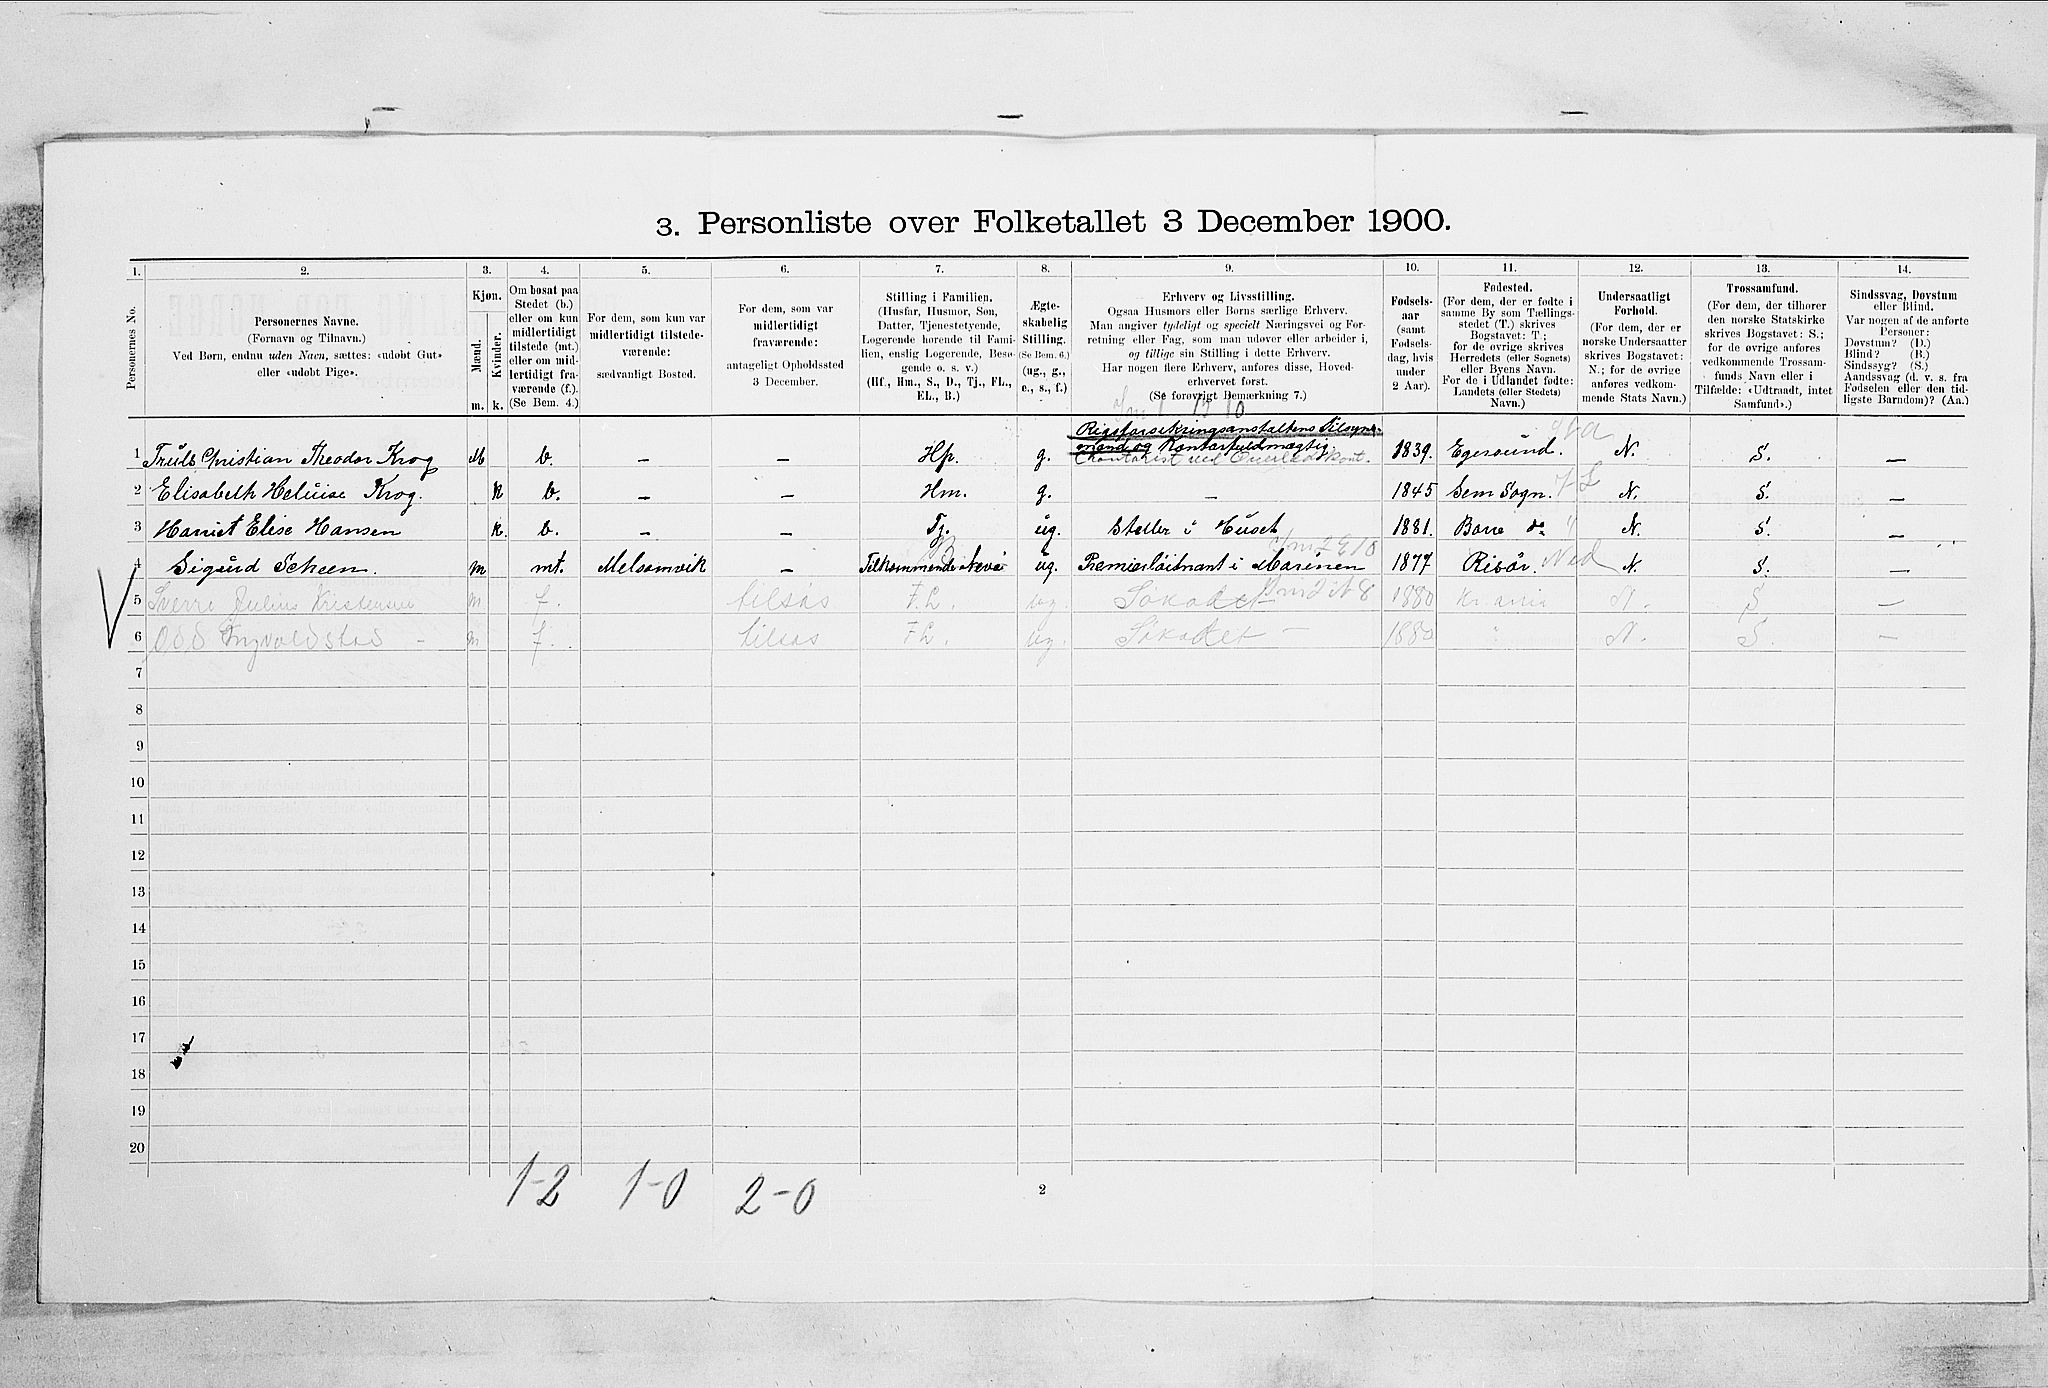 3. Personliste over Folketallet 3 December 1900.
1. 2. 3. 4. 5. 6. 7. 8. 9. 10. 11. 12. 13. 14.
Personernes No.
Personernes Navne.
(Fornavn og Tilnavn.)
Ved Børn, endnu uden Navn, sættes: «udøbt Gut»
eller «udøbt Pige».
Kjøn.
Mænd. Kvinder.
m. k.
Om bosat paa
Stedet (b.)
eller om kun
midlertidigt
tilstede (mt.)
eller om mid-
lertidigt fra-
værende (f.).
(Se Bem. 4.)
For dem, som kun var
midlertidigt tilstede-
værende:
sædvanligt Bosted.
For dem, som var
midlertidigt
fraværende:
antageligt Opholdssted
3 December.
Stilling i Familien.
(Husfar, Husmor, Søn,
Datter, Tjenestetyende,
Logerende hørende til Fami-
lien, enslig Logerende, Besø-
gende o. s. v.)
(Hf., Hm., S., D., Tj., FL.,
EL., B.)
Ægte-
skabelig
Stilling.
(Se Bem. 6.)
(ug., g.,
e., s., f.)
Erhverv og Livsstilling.
Ogsaa Husmors eller Børns særlige Erhverv.
Man angiver tydeligt og specielt Næringsvei og For-
retning eller Fag, som man udøver eller arbeider i,
og tillige sin Stilling i dette Erhverv.
Har nogen flere Erhverv, anføres disse, Hoved-
erhvervet først.
(Se forøvrigt Bemærkning 7.)
Fødsels-
aar
(samt
Fødsels-
dag, hvis
under
2 Aar).
Fødested.
(For dem, der er fødte i
samme By som Tællings-
stedet (T.) skrives
Bogstavet: T.;
for de øvrige skrives
Herredets (eller Sognets)
eller Byens Navn.
For de i Udlandet fødte:
Landets (eller Stedets)
Navn.)
Undersaatligt
Forhold.
(For dem, der er
norske Undersaatter
skrives Bogstavet:
N.; for de øvrige
anføres vedkom-
mende Stats Navn.)
Trossamfund.
(For dem, der tilhører
den norske Statskirke
skrives Bogstavet: S.;
for de øvrige anføres
vedkommende Trossam-
funds Navn eller i
Tilfælde: «Udtraadt, intet
Samfund».)
Sindssvag, Døvstum
eller Blind.
Var nogen af de anførte
Personer:
Døvstum? (D.)
Blind? (B.)
Sindssyg? (S.)
Aandssvag (d. v. s. fra
Fødselen eller den tid-
ligste Barndom)? (Aa.)
Rigsforsikringsanstaltens Tilsyns-
mand og Kontorfuldmægtig
1 Truls Christian Theodor Krog M b. – – Hf. g. 1839. Egersund. N. S. –
2 Elisabeth Heluise Krog. k b. – – Hm. g. – 1845 Sem Sogn. N. S. –
3 Harriet Elise Hansen k. b. – – Tj. ug. Steller i Huset 1881. Borre do N. S. –
4 Sigurd Scheen. m mt. Melsomvik – ug. Premierløitnant i Marinen 1877 Risør. N. S. –
5 Sverre Julius Kristensen m f. tilsøs F.L. ug. Søkadet 1880 Kr.ania N. S –
6 Odd Ingvoldstad – m f. tilsøs FL. ug. Søkadet – 1880 " N. S. –
7
8
9
10
11
12
13
14
15
16
17
18
19
20
1-2 1-0 2-0
2